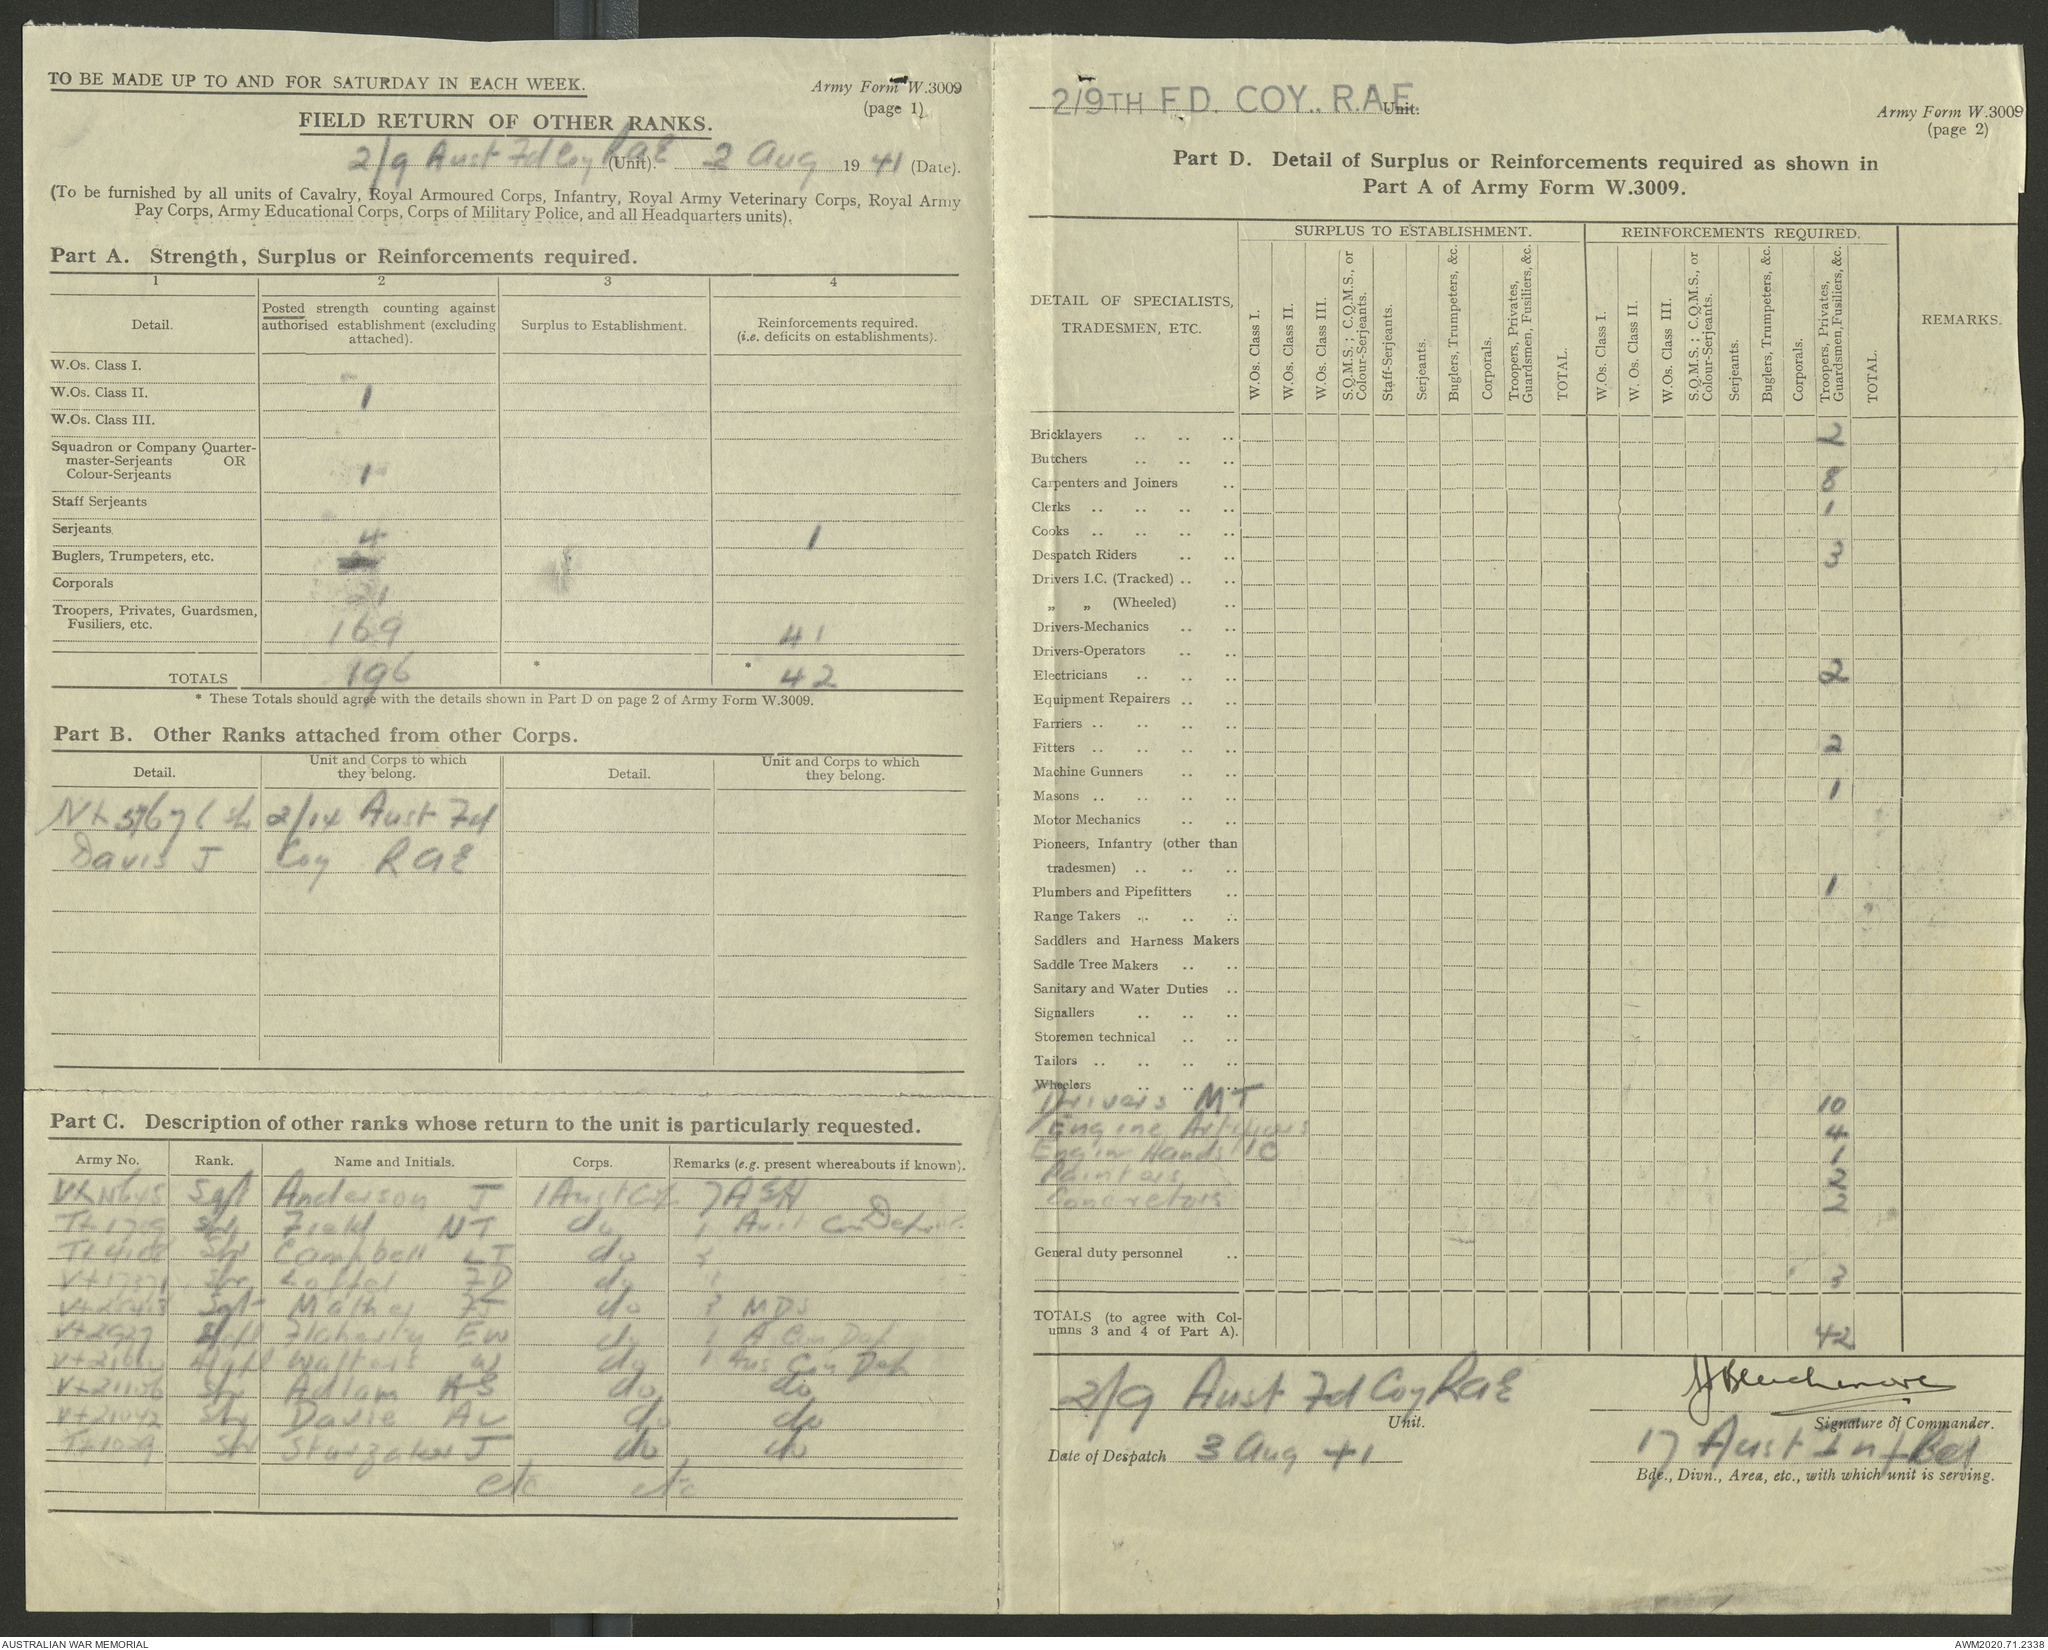 TO BE MADE UP TO AND FOR SATURDAY IN EACH WEEK.
Army Form W.3009
(page 1)
FIELD RETURN OF OTHER RANKS.
2/9 Aust Fd Coy RAE (Unit). 2 Aug 1941 (Date).
(To be furnished by all units of Cavalry, Royal Armoured Corps, Infantry, Royal Army Veterinary Corps, Royal Army
Pay Corps, Army Educational Corps, Corps of Military Police, and all Headquarters units).
Part A. Strength, Surplus or Reinforcements required.
1 2 3 4
Detail.
Posted strength counting against
authorised establishment (excluding
attached).
Surplus to Establishment.
Reinforcements required.
(i.e. deficits on establishments).
W.Os. Class I.
W.Os. Class II. 1
W.Os. Class III.
Squadron or Company Quarter-
master-Serjeants OR
Colour-Serjeants 1
Staff Serjeants
Serjeants 4 1
Buglers, Trumpeters, etc.
Corporals 21
Troopers, Privates, Guardsmen,
Fusiliers, etc. 169 41
TOTALS 196 * * 42
* These Totals should agree with the details shown in Part D on page 2 of Army Form W.3009.
Part B. Other Ranks attached from other Corps.
Detail.
Unit and Corps to which
they belong.
Detail.
Unit and Corps to which
they belong.
2/14 Aust Fd
Davis J Coy RAE
Part C. Description of other ranks whose return to the unit is particularly requested.
Army No. Rank. Name and Initials. Corps. Remarks (e.g. present whereabouts if known).
Sgt Anderson J 1 Aust 7 AGH
Spr Field NT do 1 Aust Con Dep
Spr Campbell LT do
Spr FD do
Sgt Mather FJ do MDS
Flaherty EW do Con Dep
Walters W do Con Dep
Spr Adlam AS do do
Spr Davie AL do do
Spr J do do
etc etc
2/9TH FD. COY., R.A.E. Unit.
Army Form W.3009
(page 2)
Part D. Detail of Surplus or Reinforcements required as shown in
Part A of Army Form W.3009.
DETAIL OF SPECIALISTS,
TRADESMEN, ETC.
SURPLUS TO ESTABLISHMENT.
W.Os. Class I.
W.Os. Class II.
W.Os. Class III.
S.Q.M.S.; C.Q.M.S., or
Colour-Serjeants.
Staff-Serjeants.
Serjeants.
Buglers, Trumpeters, &c.
Corporals.
Troopers, Privates,
Guardsmen, Fusiliers, &c.
TOTAL.
REINFORCEMENTS REQUIRED.
W.Os. Class I.
W. Os. Class II.
W.Os. Class III.
S.Q.M.S.; C.Q.M.S., or
Colour-Serjeants.
Serjeants.
Buglers, Trumpeters, &c.
Corporals.
Troopers, Privates,
Guardsmen, Fusiliers, &c.
TOTAL.
REMARKS.
Bricklayers .. .. .. 2
Butchers .. .. ..
Carpenters and Joiners .. 8
Clerks .. .. .. .. 1
Cooks .. .. .. ..
Despatch Riders .. .. 3
Drivers I.C. (Tracked) .. ..
„ „ (Wheeled) ..
Drivers-Mechanics .. ..
Drivers-Operators .. ..
Electricians .. .. .. 2
Equipment Repairers .. ..
Farriers .. .. .. ..
Fitters .. .. .. .. 2
Machine Gunners .. ..
Masons .. .. .. .. 1
Motor Mechanics .. ..
Pioneers, Infantry (other than
tradesmen) .. .. ..
Plumbers and Pipefitters .. 1
Range Takers .. .. ..
Saddlers and Harness Makers
Saddle Tree Makers .. ..
Sanitary and Water Duties ..
Signallers .. .. ..
Storemen technical .. ..
Tailors .. .. .. ..
Wheelers .. .. ..
Drivers MT 10
Engine Artificers 4
Engine Hands IC 1
Painters 2
Concretors 2
General duty personnel ..
3
TOTALS (to agree with Col-
umns 3 and 4 of Part A). 42
2/9 Aust Fd Coy RAE
Unit.
Signature of Commander.
Date of Despatch 3 Aug 41
17 Aust Inf Bde
Bde., Divn., Area, etc., with which unit is serving.
AUSTRALIAN WAR MEMORIAL
AWM2020.71.2338